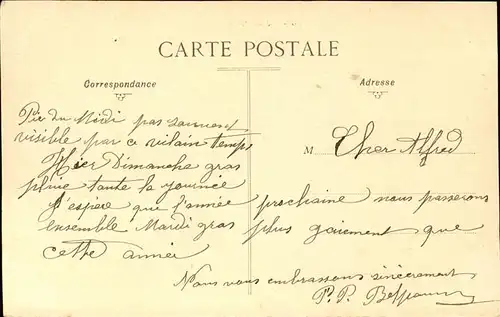 CARTE POSTALE
Correspondance
Adresse
Pic du Midi pas
visible par ce vilain temps
Hier Dimanche gras
pluie toute la journée
J'espère que l'année prochaine nous passerons
ensemble Mardi gras plus gaiement que
cette année
M Cher Alfred
Nous vous embrassons sincèrement
P. P.